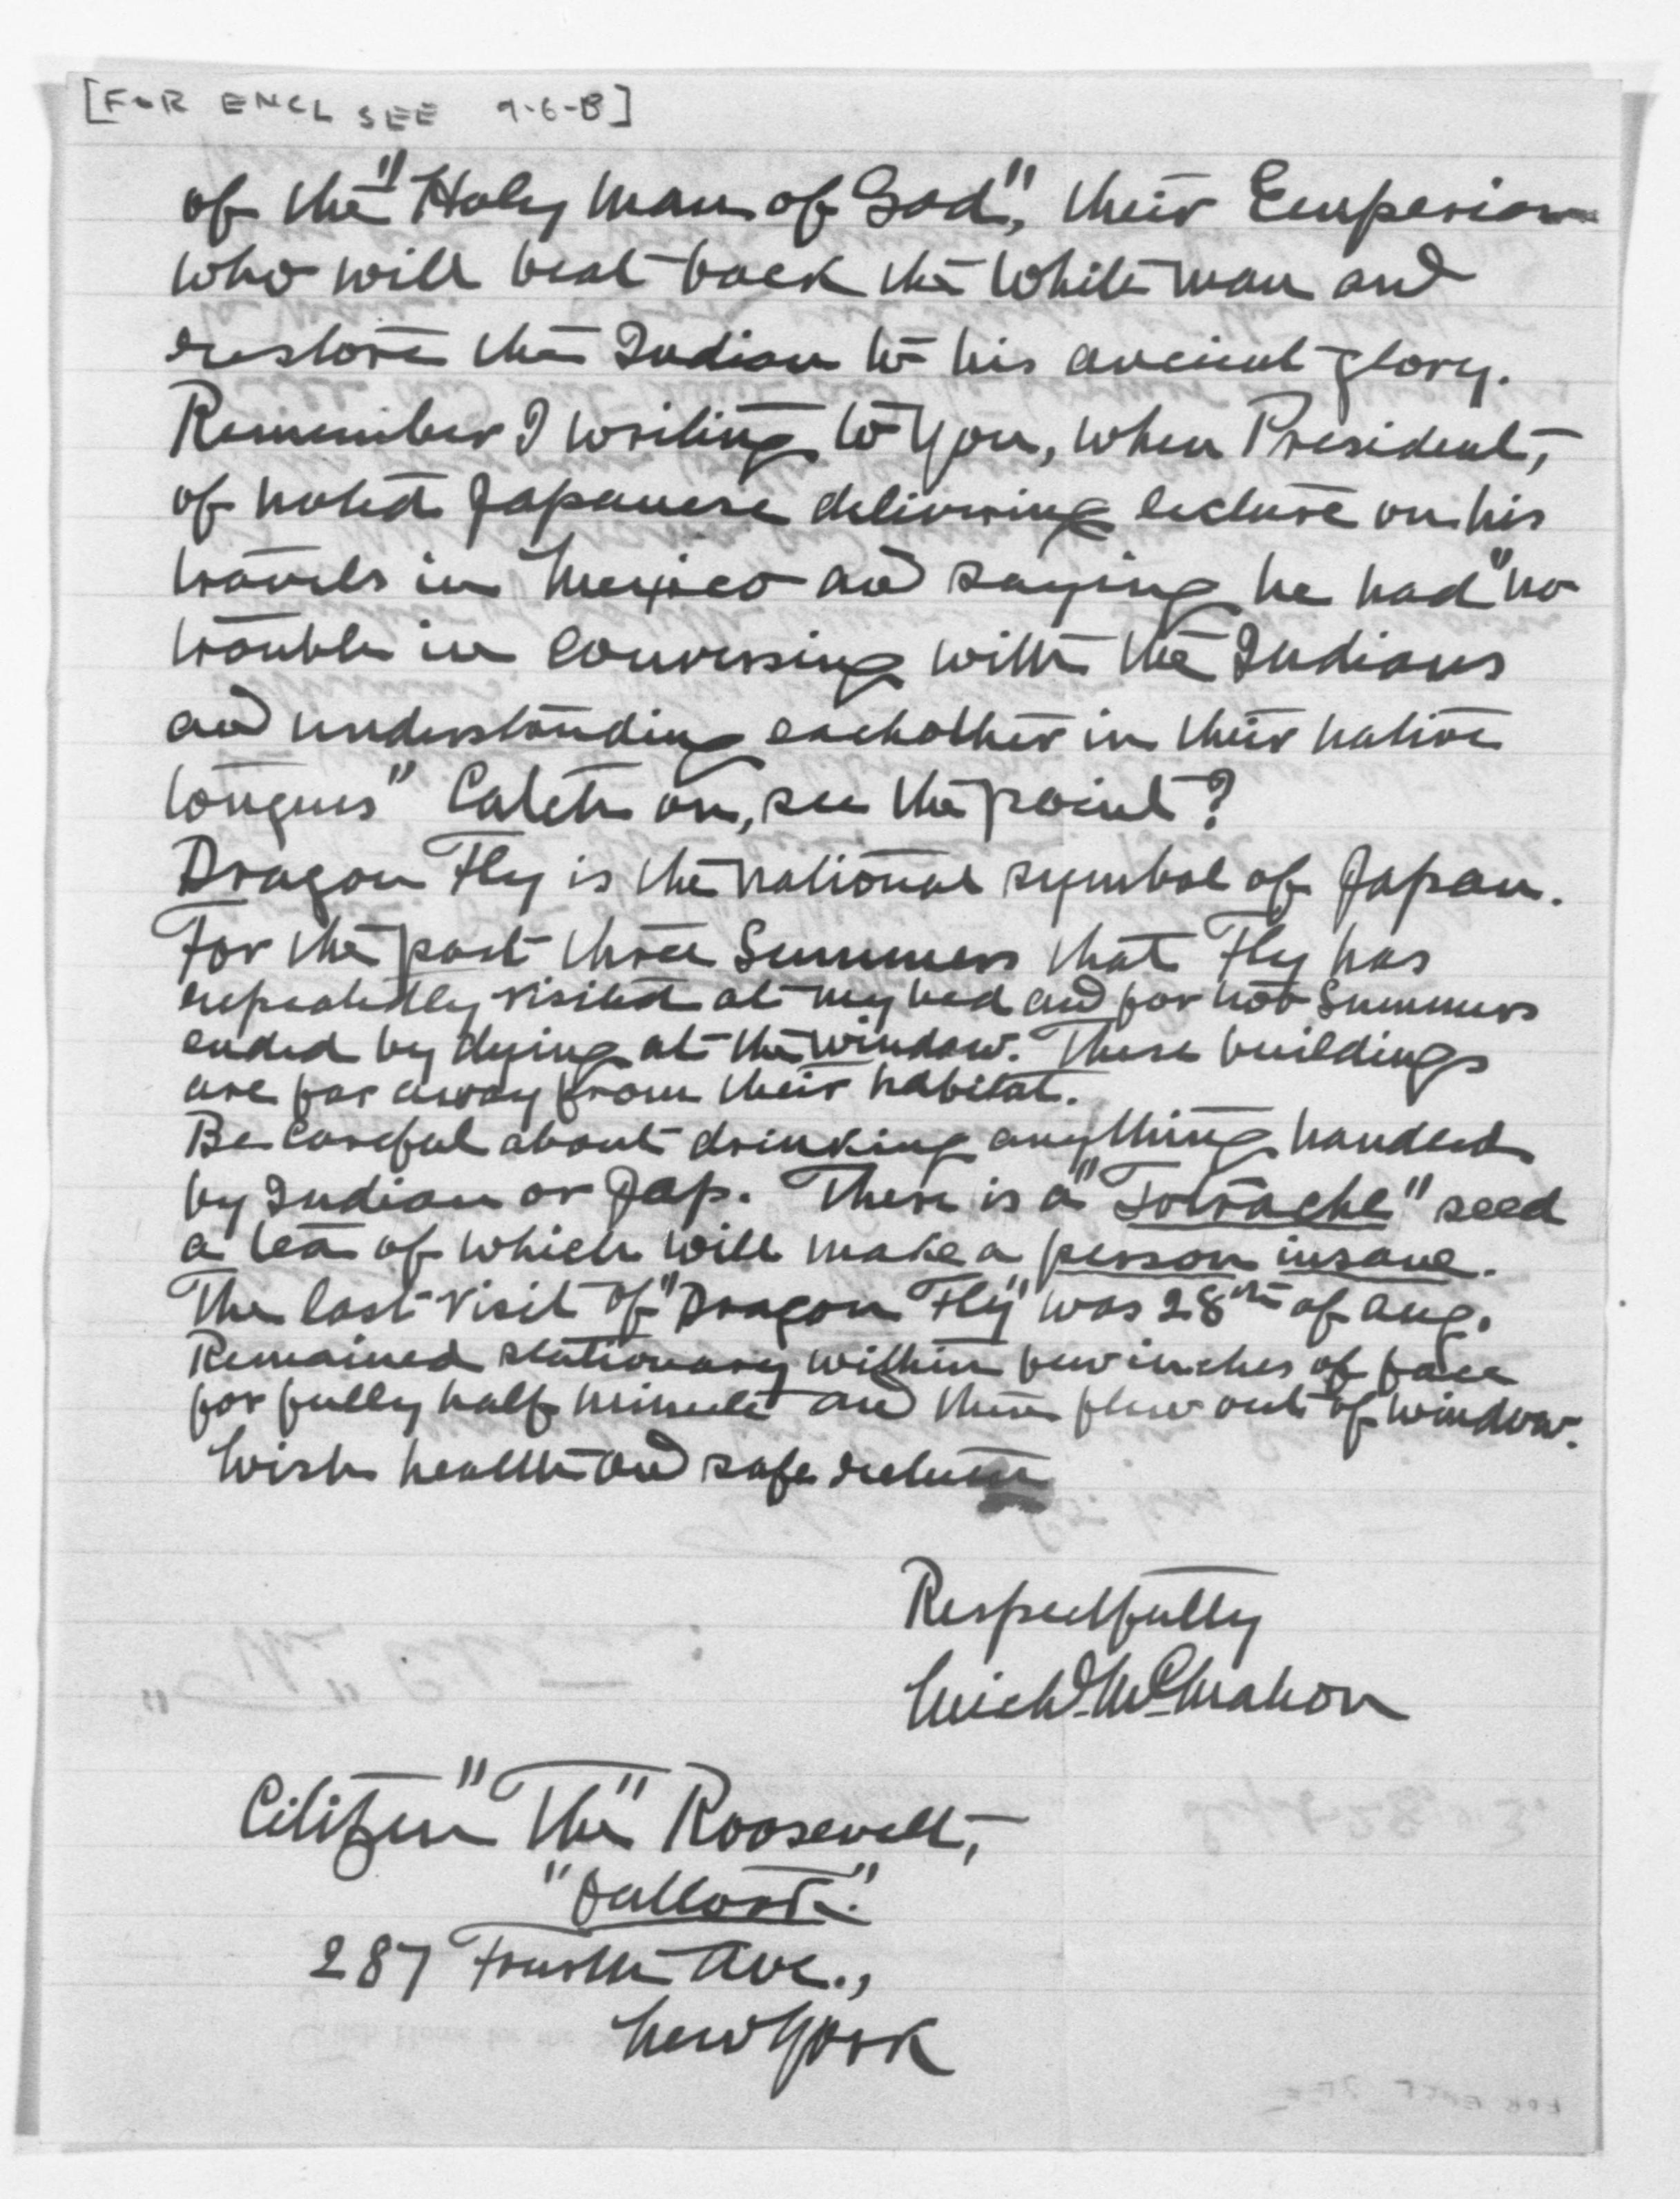 [FOR ENCL SEE 9-6-B]
of the "Holy Man of God", their Emperior
who will beat back the White man and
restore the Indian to his ancient glory.
Remember I writing to You, when President,
of noted Japanese delivering lecture on his
travels in Mexico and saying he had "no
trouble in conversing with the Indians
and understanding eachother in their native
tongues" Catch on, see the point?
Dragon Fly is the national symbol of Japan.
For the past three Summers that Fly has
repeatedly visited at my bed and for two Summers
ended by dying at the window. These buildings
are far away from their habitat.
Be careful about drinking anything handed
by Indian or Jap. There is a "Tolvache" seed
a tea of which will make a person insane.
The last visit of "Dragon Fly" was 28th of Aug.
Remained stationary within few inches of face
for fully half minute and then flew out of window.
Wish health and safe return
Respectfully
McMahon
Citizen "The" Roosevelt,
287 Fourth Ave.,
New York